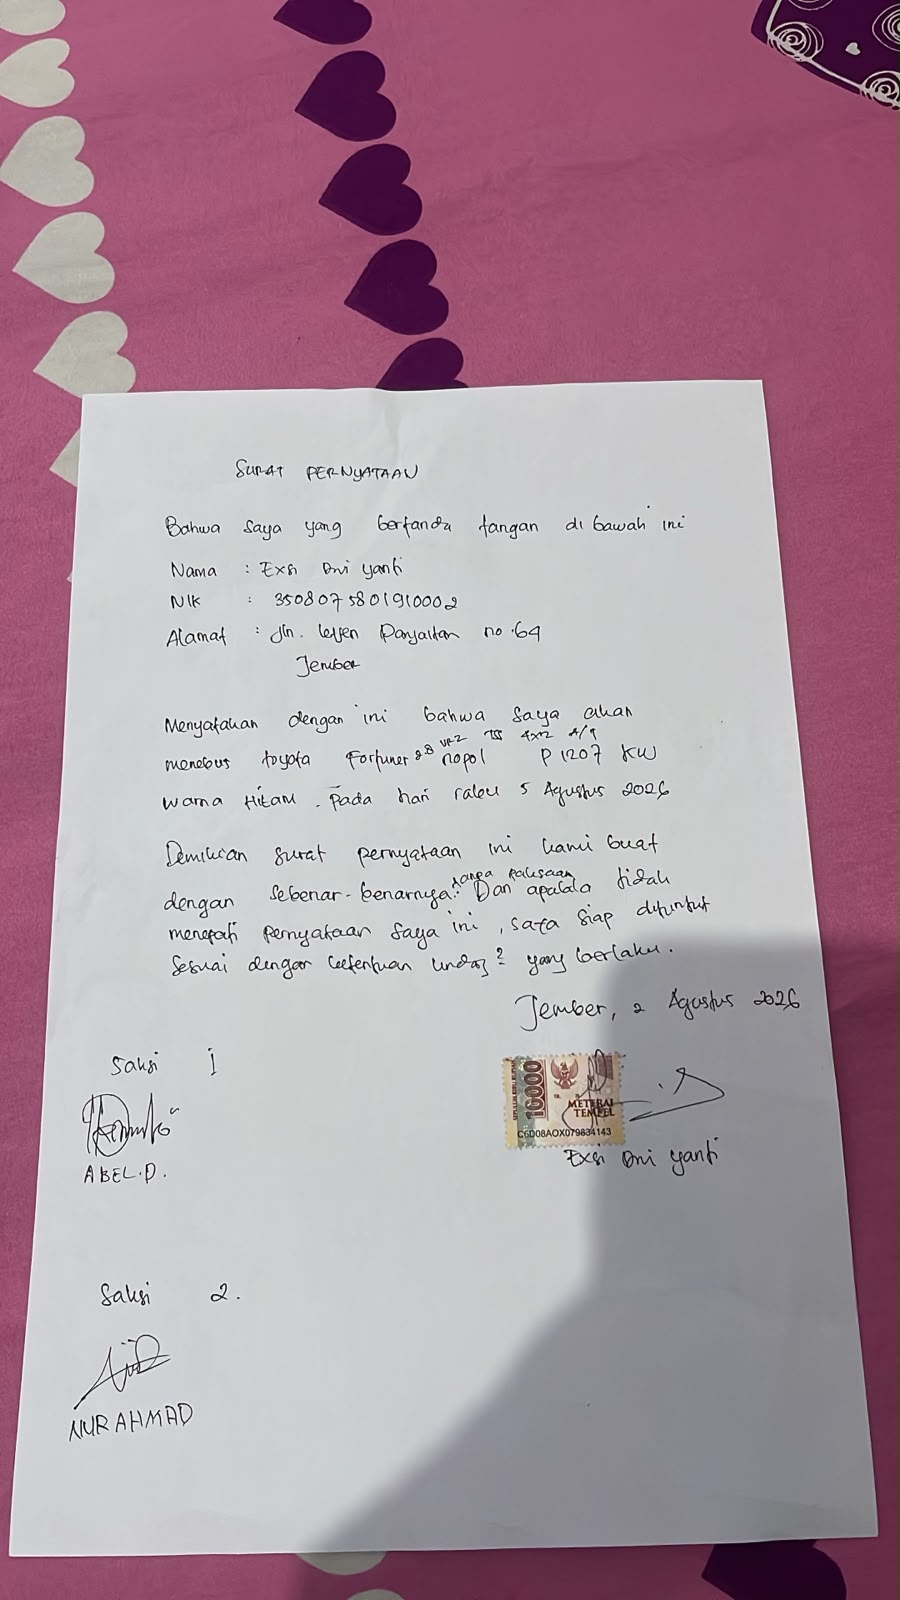 SURAT PERNYATAAN
Bahwa saya yang bertanda tangan di bawah ini
Nama : Exsi Dwi Yanti
NIK : 3508075801910002
Alamat : Jln. Letjen Panjaitan no. 64
Jember
Menyatakan dengan ini bahwa saya akan
menebus toyota Fortuner 2.8 VRZ 4x2 A/T nopol P 1207 KW
warna Hitam. Pada hari rabu 5 Agustus 2026
Demikian surat pernyataan ini kami buat
dengan sebenar-benarnya tanpa paksaan. Dan apabila tidak
menepati pernyataan saya ini, saya siap dituntut
sesuai dengan ketentuan undag2 yang berlaku.
Jember, 2 Agustus 2026
Saksi 1
SEPULUH RIBU RUPIAH
10000
METERAI
TEMPEL
C6D08AOX079834143
ABEL.D.
Exsi Dwi Yanti
Saksi 2.
NUR AHMAD